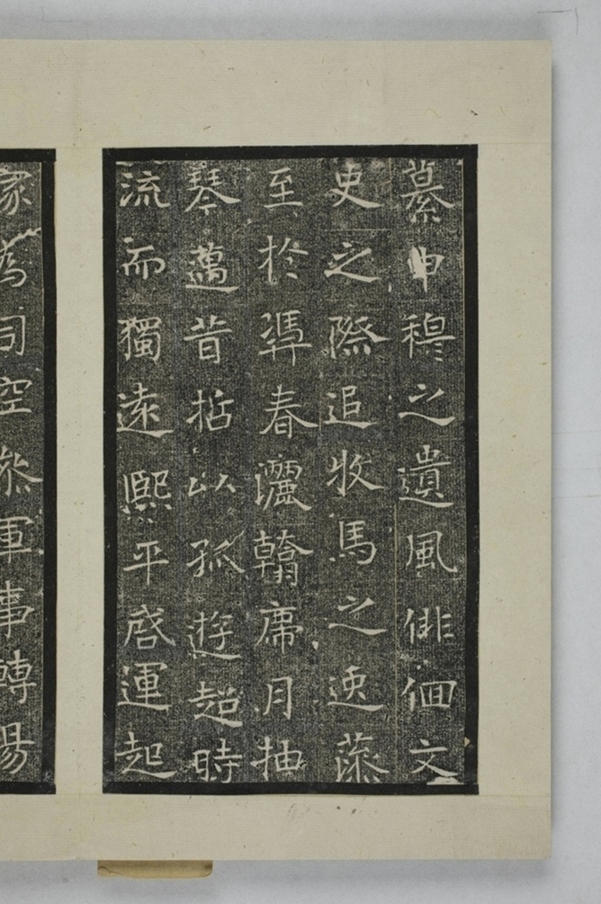 綦申穆之遺風俳佪文
史之際追牧馬之逸藻
至於凴春灑翰席月抽
琴邁昔喆以孤遊超時
流而獨遠熙平啓運起
家為司空參軍事轉揚